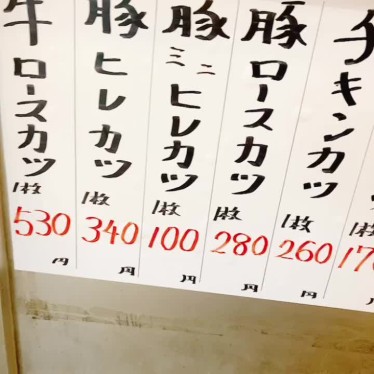 牛ロースカツ
1枚
530
円
豚ヒレカツ
1枚
340
円
豚ミニヒレカツ
1枚
100
円
豚ロースカツ
1枚
280
円
チキンカツ
1枚
260
円
1枚
170
円